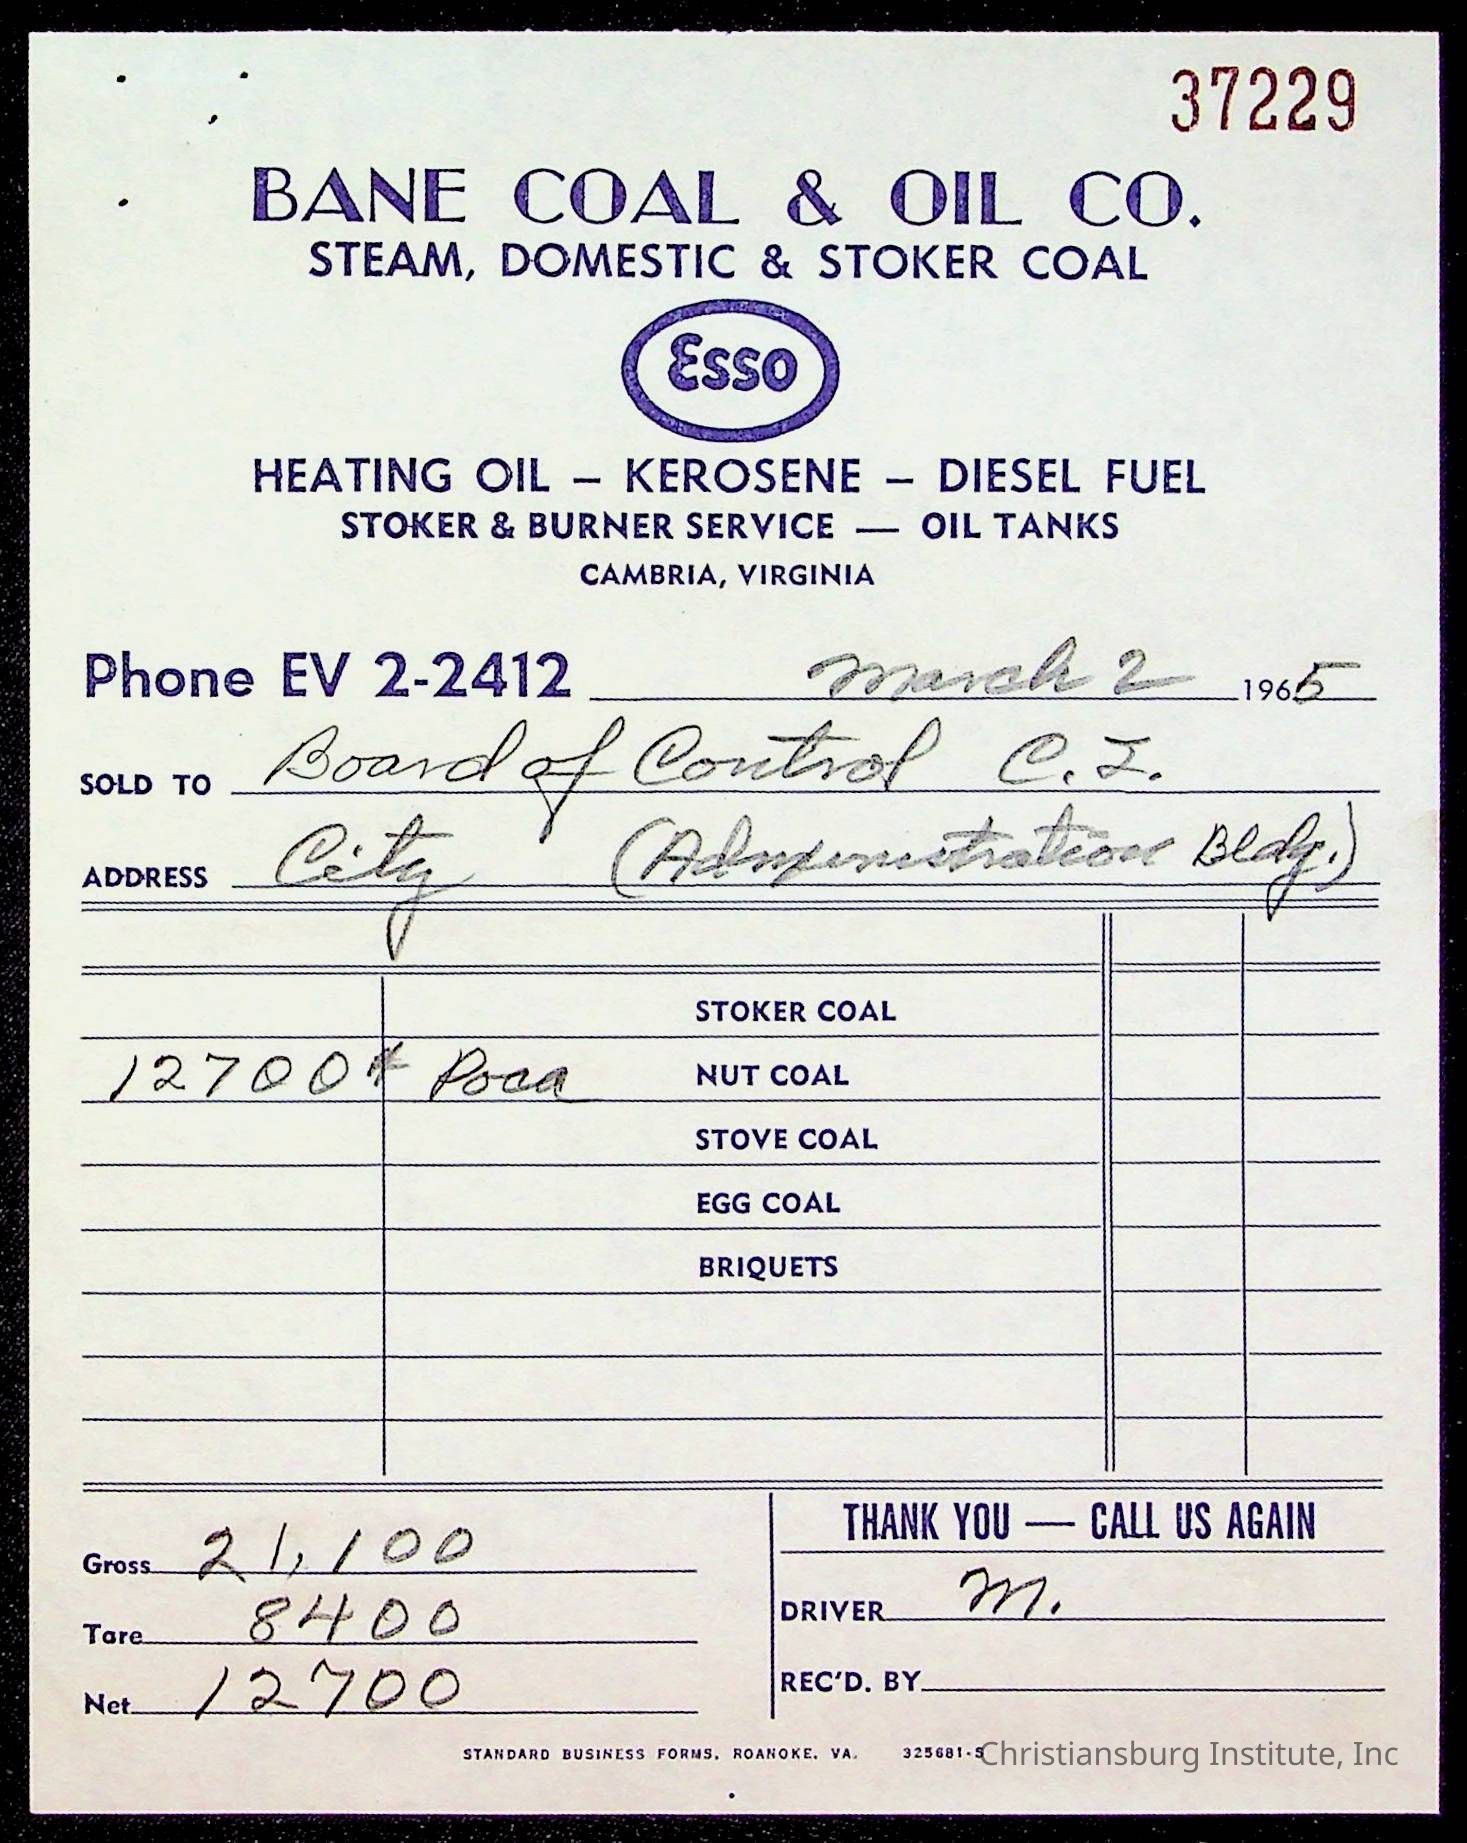 37229
BANE COAL & OIL CO.
STEAM, DOMESTIC & STOKER COAL
Esso
HEATING OIL – KEROSENE – DIESEL FUEL
STOKER & BURNER SERVICE — OIL TANKS
CAMBRIA, VIRGINIA
Phone EV 2-2412 March 2 1965
SOLD TO Board of Control C. I.
ADDRESS City (Administration Bldg.)
STOKER COAL
12700# Poca NUT COAL
STOVE COAL
EGG COAL
BRIQUETS
THANK YOU — CALL US AGAIN
Gross 21,100
Tare 8400
Net 12700
DRIVER M.
REC'D. BY
STANDARD BUSINESS FORMS, ROANOKE, VA. 325681-S
Christiansburg Institute, Inc